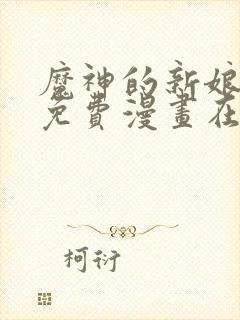 魔神的新娘
免費漫畫在
柯衍